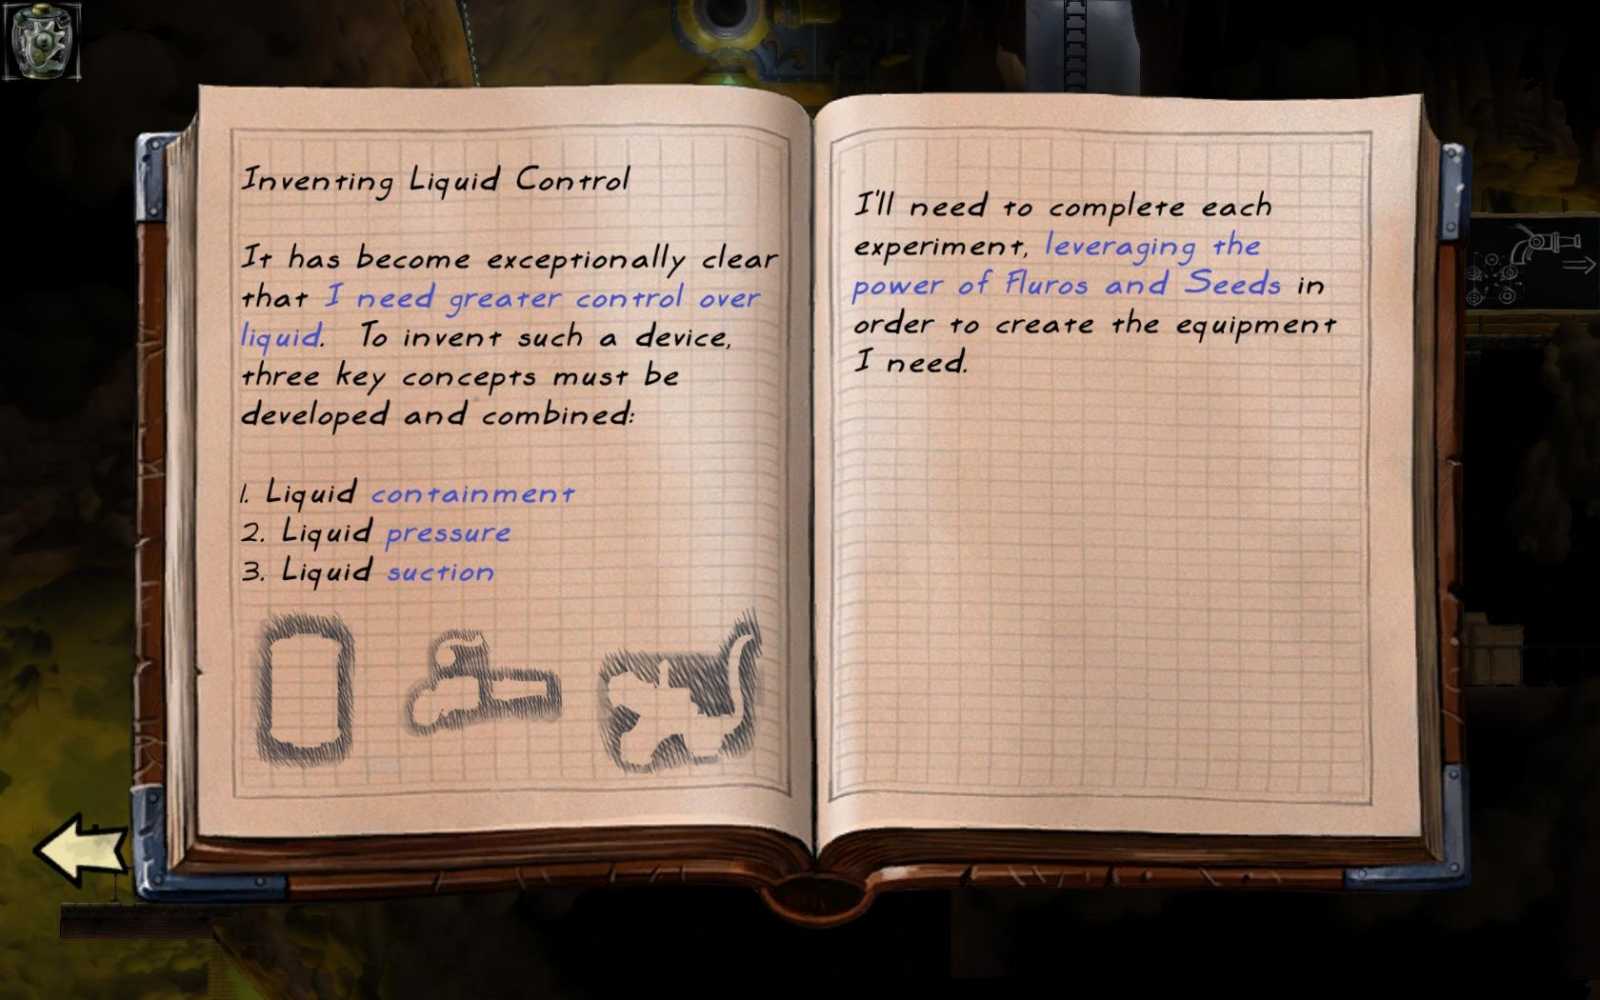 Inventing Liquid Control
It has become exceptionally clear
that I need greater control over
liquid. To invent such a device,
three key concepts must be
developed and combined:
1. Liquid containment
2. Liquid pressure
3. Liquid suction
I'll need to complete each
experiment, leveraging the
power of Fluros and Seeds in
order to create the equipment
I need.